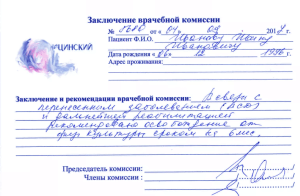 Заключение врачебной комиссии
№ от «04» 09 2014 г.
Пациент Ф.И.О. Иванову Ивану
Ивановичу
ЦИНСКИЙ
Дата рождения «06» 12 1996 г.
Адрес проживания:
Заключение и рекомендации врачебной комиссии: В связи с
перенесенным заболеванием
и дальнейшей реабилитацией
рекомендовано освобождение от
физ. культуры сроком на 6 мес.
Председатель комиссии:
Члены комиссии :